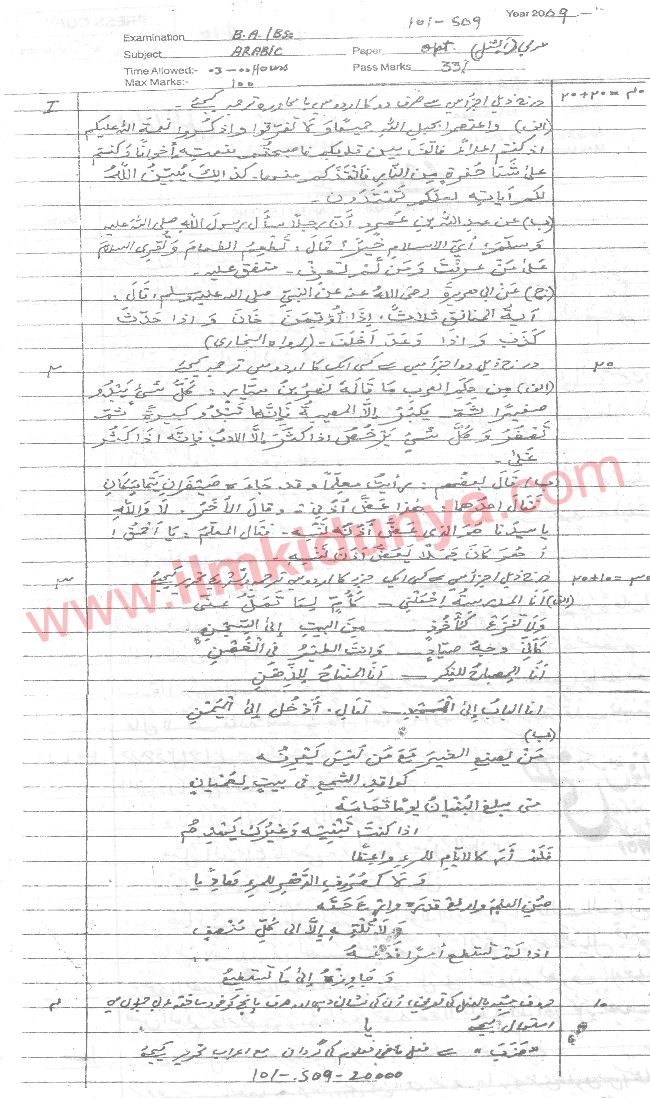 101-S09 Year 2009
Examination B.A/BSc
Subject ARABIC Paper Opt. عربی (آپشنل)
Time Allowed:- 03-00 Hours Pass Marks 33%
Max Marks:- 100
I درج ذیل اجزا میں سے صرف دو کا اردو میں با محاورہ ترجمہ کیجئے۔ ۲۰+۲۰=۴۰
(الف) واعتصموا بحبل اللہ جمیعا و لا تفرقوا و اذکروا نعمة اللہ علیکم
اذ کنتم اعداءً فالف بین قلوبکم فاصبحتم بنعمتہ إخوانا وکنتم
علی شفا حفرة من النار فانقذکم منها۔ کذالک یُبَیِّنُ اللّٰہُ
لکم آیاتہ لعلکم تھتدون۔
(ب) عن عبد اللہ بن عمرو أن رجلا سأل رسول اللہ صلی اللہ علیہ
وسلم: أیّ الاسلام خیر؟ قال: تُطعِم الطعام وَتُقرِئ السلام
علی مَنْ عرفتَ وَمَن لَّمْ تعرِف۔ متفق علیہ۔
(ج) عَن ابی ھریرة رضی اللہُ عنہ عن النبی صلی اللہ علیہ وسلم، قال:
آیة المنافق ثلاث، إذا أؤتمن خان و اذا حدّث
کذب و اذا وعد أخلف۔ (رواہ البخاری)
۲ درج ذیل دو اجزا میں سے کسی ایک کا اردو میں ترجمہ کیجئے ۲۰
(الف) مِن حِکَم العرب ما قالہ نصر بن سیار: کُلُّ شیٔ یَبْدُو
صغیرًا ثُمَّ یکبُرُ إلّا المصیبةُ فإنّھا تَبْدُو کبیرةً ثُمَّ
تصغر وَ کُلُّ شیٔ یَرْخُصُ إذا کَثُرَ إلّا الادبُ فإنّہ اذا کثُر
غلیٰ۔
(ب) قال بعضھم: رأیت معلّما و قد جاءہ صغیران یتماسکان
فقال احدھما: ھٰذا عضَّ أذنی، و قال الآخر: لا واللّٰہِ
یا سیدنا ھو الذی عَضَّ أذنَ نفسہ۔ فقال المعلم: یا احمق!
أ ھو کان جملاً یعضُّ أذن نفسہ
۳ درج ذیل اجزا میں سے کسی ایک جزو کا اردو میں ترجمہ و تشریح تحریر کیجئے ۲۰+۱۰=۳۰
(الف) أنا المدرسةُ اجعلنی — کأُمٍّ لا تَمِلْ عنّی
ولا تفزع کمأخوذ — من البیت إلی السجن
کأنّی وجہ صیاد — وأنت الطیر فی الغُصْن
أنا المصباح للفکر — أنا المفتاح للذِّھن
انا الباب إلی المجد — تعال، أُدخُل إلی الیُمن
(ب)
مَنْ یصنع الخیر مَعَ مَن لیس یعرفہ
کواقد الشمع فی بیت لعمیان
متی یبلغ البُنیان یومًا تمامَہ
اذا کنت تبنیہ وَ غیرک یَھدم
فلم أر کالأیام للمرء واعظًا
وَ لا کصروف الدَّھر للمرء ھادیا
صُن العلم وارفع قدرہ وارع حقّہ
وَ لا تُلقِہ إلّا الی کُلِّ مُنصف
اذا لم تستطع أمرًا فَدَعہُ
وَ جاوِزْہُ إلیٰ ما تستطیعُ
۴ حروف مشبہ بالفعل کی تعریف، ان کی نشان دہی اور صرف پانچ کو خود ساختہ عربی جملوں میں ۱۰
استعمال کیجئے یا
سے فعل ماضی معلوم کی گردان مع اعراب تحریر کیجئے
101-S09-20000
www.ilmkidunya.com